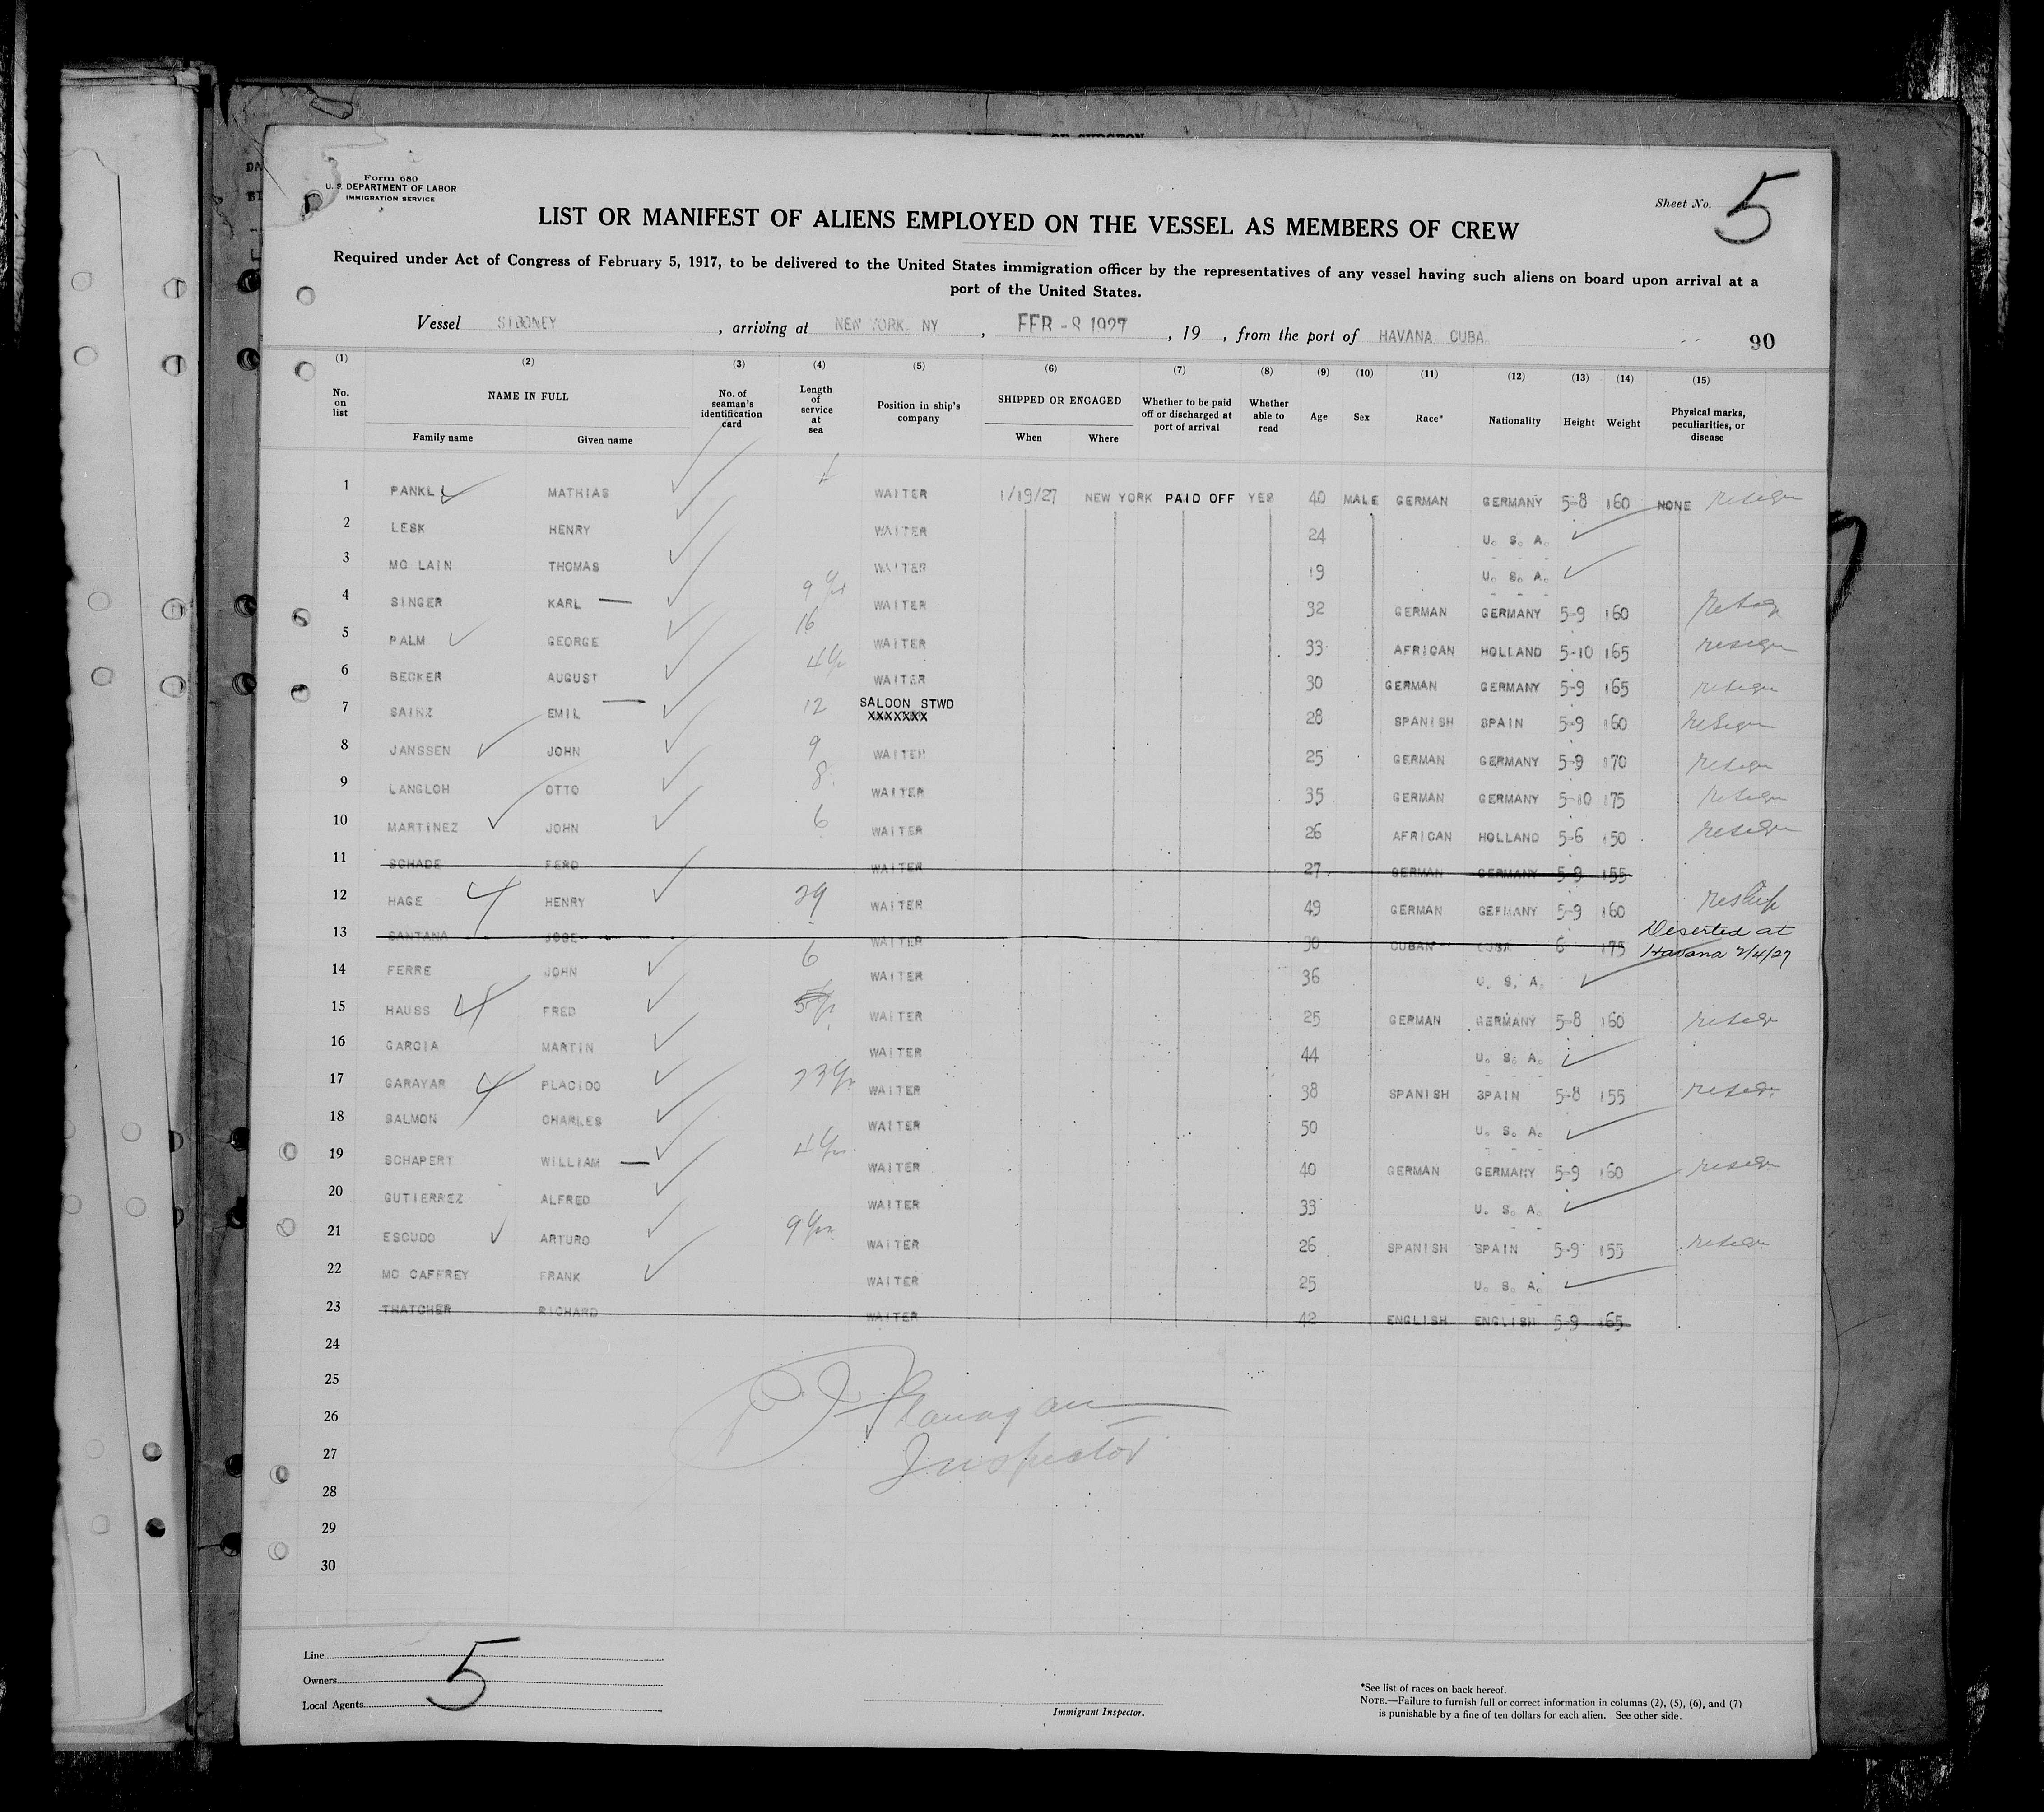 Form 680
U. S. DEPARTMENT OF LABOR
IMMIGRATION SERVICE
Sheet No. 5
LIST OR MANIFEST OF ALIENS EMPLOYED ON THE VESSEL AS MEMBERS OF CREW
Required under Act of Congress of February 5, 1917, to be delivered to the United States immigration officer by the representatives of any vessel having such aliens on board upon arrival at a
port of the United States.
Vessel SIBONEY , arriving at NEW YORK, NY , FEB -8 1927 , 19 , from the port of HAVANA CUBA 90
(1) (2) (3) (4) (5) (6) (7) (8) (9) (10) (11) (12) (13) (14) (15)
No. on list NAME IN FULL Family name Given name No. of seaman's identification card Length of service at sea Position in ship's company SHIPPED OR ENGAGED When Where Whether to be paid off or discharged at port of arrival Whether able to read Age Sex Race* Nationality Height Weight Physical marks, peculiarities, or disease
1 PANKL MATHIAS WAITER 1/19/27 NEW YORK PAID OFF YES 40 MALE GERMAN GERMANY 5-8 160 NONE
2 LESK HENRY WAITER 24 U. S. A.
3 MC LAIN THOMAS WAITER 19 U. S. A.
4 SINGER KARL 9 yrs WAITER 32 GERMAN GERMANY 5-9 160
5 PALM GEORGE 16 WAITER 33 AFRICAN HOLLAND 5-10 165
6 BECKER AUGUST 4 yr WAITER 30 GERMAN GERMANY 5-9 165
7 SAINZ EMIL 12 SALOON STWD XXXXXXX 28 SPANISH SPAIN 5-9 160
8 JANSSEN JOHN 9 WAITER 25 GERMAN GERMANY 5-9 170
9 LANGLOH OTTO 8 WAITER 35 GERMAN GERMANY 5-10 175
10 MARTINEZ JOHN 6 WAITER 26 AFRICAN HOLLAND 5-6 150
11 SCHADE FERD WAITER 27 GERMAN GERMANY 5-8 155
12 HAGE HENRY 29 WAITER 49 GERMAN GERMANY 5-9 160 reship
13 SANTANA JOSE WAITER 30 CUBAN CUBA 6 175 Deserted at Havana 2/4/27
14 FERRE JOHN 6 WAITER 36 U. S. A.
15 HAUSS FRED WAITER 25 GERMAN GERMANY 5-8 160
16 GARCIA MARTIN WAITER 44 U. S. A.
17 GARAYAR PLACIDO 23 yr WAITER 38 SPANISH SPAIN 5-8 155
18 SALMON CHARLES WAITER 50 U. S. A.
19 SCHAPERT WILLIAM 4 yrs WAITER 40 GERMAN GERMANY 5-9 160
20 GUTIERREZ ALFRED WAITER 33 U. S. A.
21 ESCUDO ARTURO 9 yrs WAITER 26 SPANISH SPAIN 5-9 155
22 MC CAFFREY FRANK WAITER 25 U. S. A.
23 THATCHER RICHARD WAITER 42 ENGLISH ENGLISH 5-9 165
24
25
26 Flanagan
27 Inspector
28
29
30
Line
Owners
Local Agents
5
Immigrant Inspector.
*See list of races on back hereof.
NOTE.—Failure to furnish full or correct information in columns (2), (5), (6), and (7)
is punishable by a fine of ten dollars for each alien. See other side.